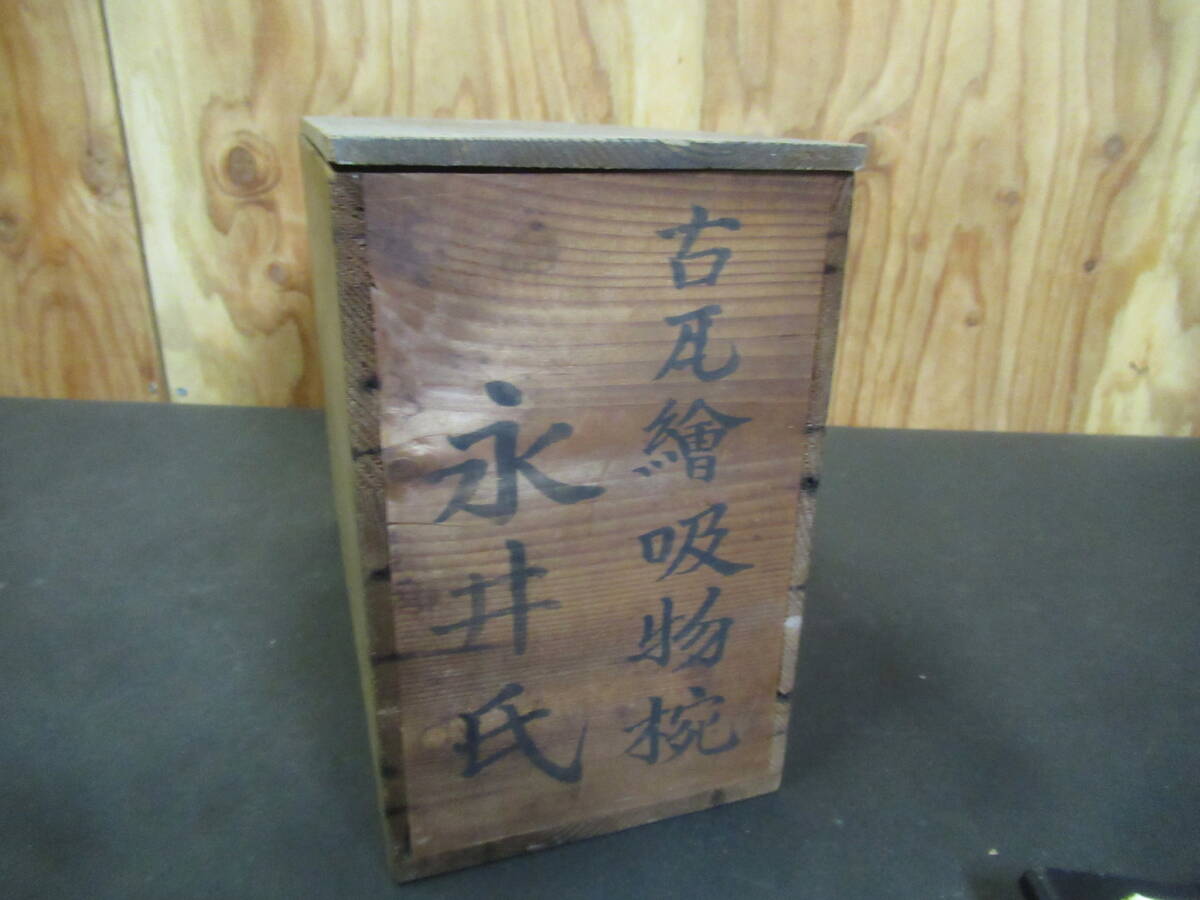 古瓦繪吸物椀
永井氏